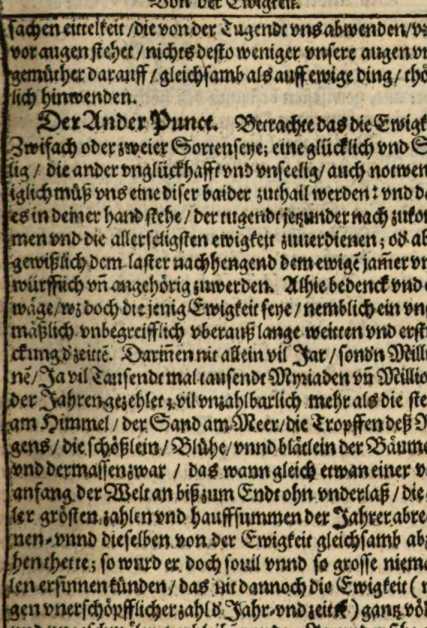 Von der Ewigkeit.
sachen eittelkeit / die von der Tugendt vns abwenden /
vor augen stehet / nichts desto weniger vnsere augen
gemüther darauff / gleichsamb als auff ewige ding /
lich hinwenden.
Der Ander Punct. Betrachte das die Ewigk
Zwifach oder zweier Sortenseye; eine glücklich vnd S
lig / die ander vnglückhafft vnd vnseelig / auch notwen
iglich müß vns eine diser baider zuthail werden: vnd
es in deiner hand stehe / der tugendt jetzunder nach
men vnd die allerseligsten ewigkeit zuuerdienen; od ab
gewißlich dem laster nachhengend dem ewigē jam̄er
würffich vn̄ angehörig zuwerden. Alhie bedenck vnd
wäge / wz doch die jenig Ewigkeit seye / nemblich ein
mäßlich vnbegreifflich vberauß lange weitten vnd
ckung d zeittē. Darin̄en nit allein vil Jar / sond'n Mill
nē / Ja vil Tausendt mal tausendt Myriaden vn̄ Millio
der Jahren gezehlet, vil vnzahlbarlich mehr als die ste
am Himmel / der Sand am Meer / die Tropffen deß
gens / die schößlein / Blühe / vnnd blätlein der Bäume
vnd dermassen zwar / das wann gleich etwan einer
anfang der Welt an biß zum Endt ohn vnderlaß / die
ler grösten zahlen vnd hauffsummen der Jahrer abre
nen, vnnd dieselben von der Ewigkeit gleichsamb ab
hen thette; so wurd er doch souil vnnd so grosse niema
len ersinnen künden / das nit dannoch die Ewigkeit (
gen vnerschöpfflicher zahl d' Jahr vnd zeitē) gantz